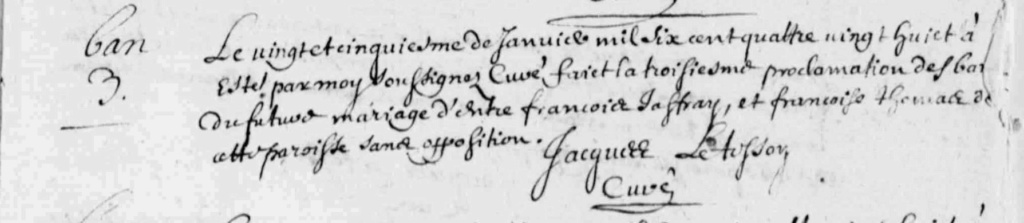 ban
3.
Le vingt et cinquiesme de Janvier mil six cent quattre vingt huict à
esté par moy soussignez Curé, faict la troisiesme proclamation des ban
du future mariage d'entre francoice Jaffray, et francoise thomas de
cette paroisse sans opposition. Jacques
Curé